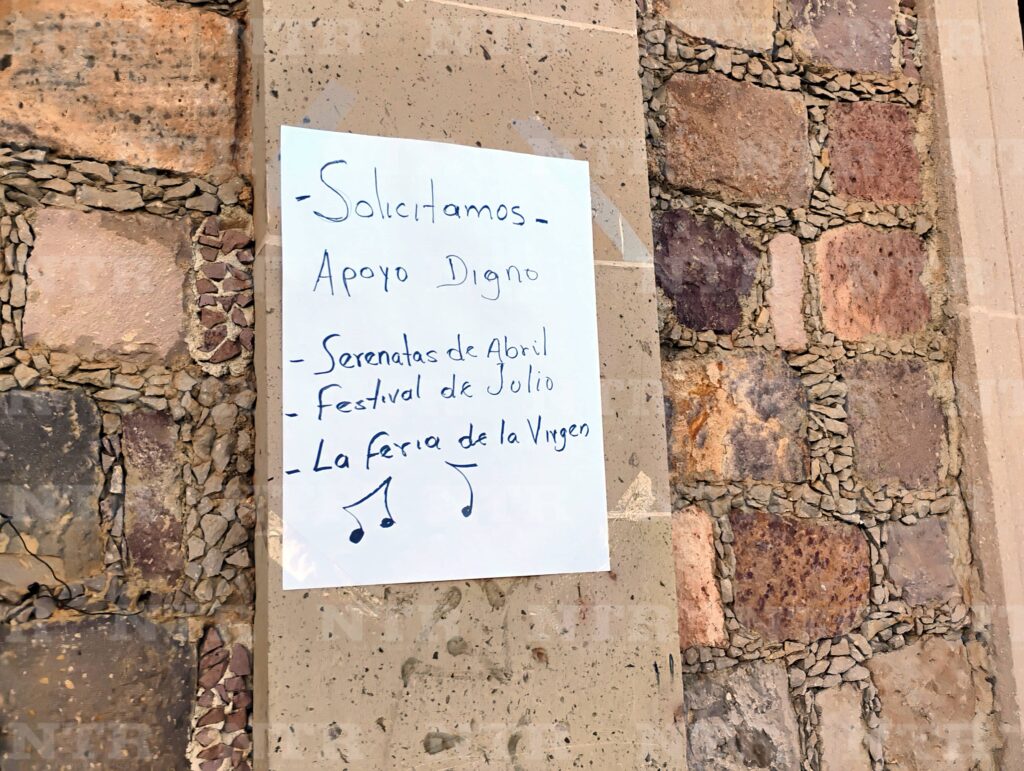 - Solicitamos -
Apoyo Digno
- Serenatas de Abril
- Festival de Julio
- La Feria de la Virgen
NTR